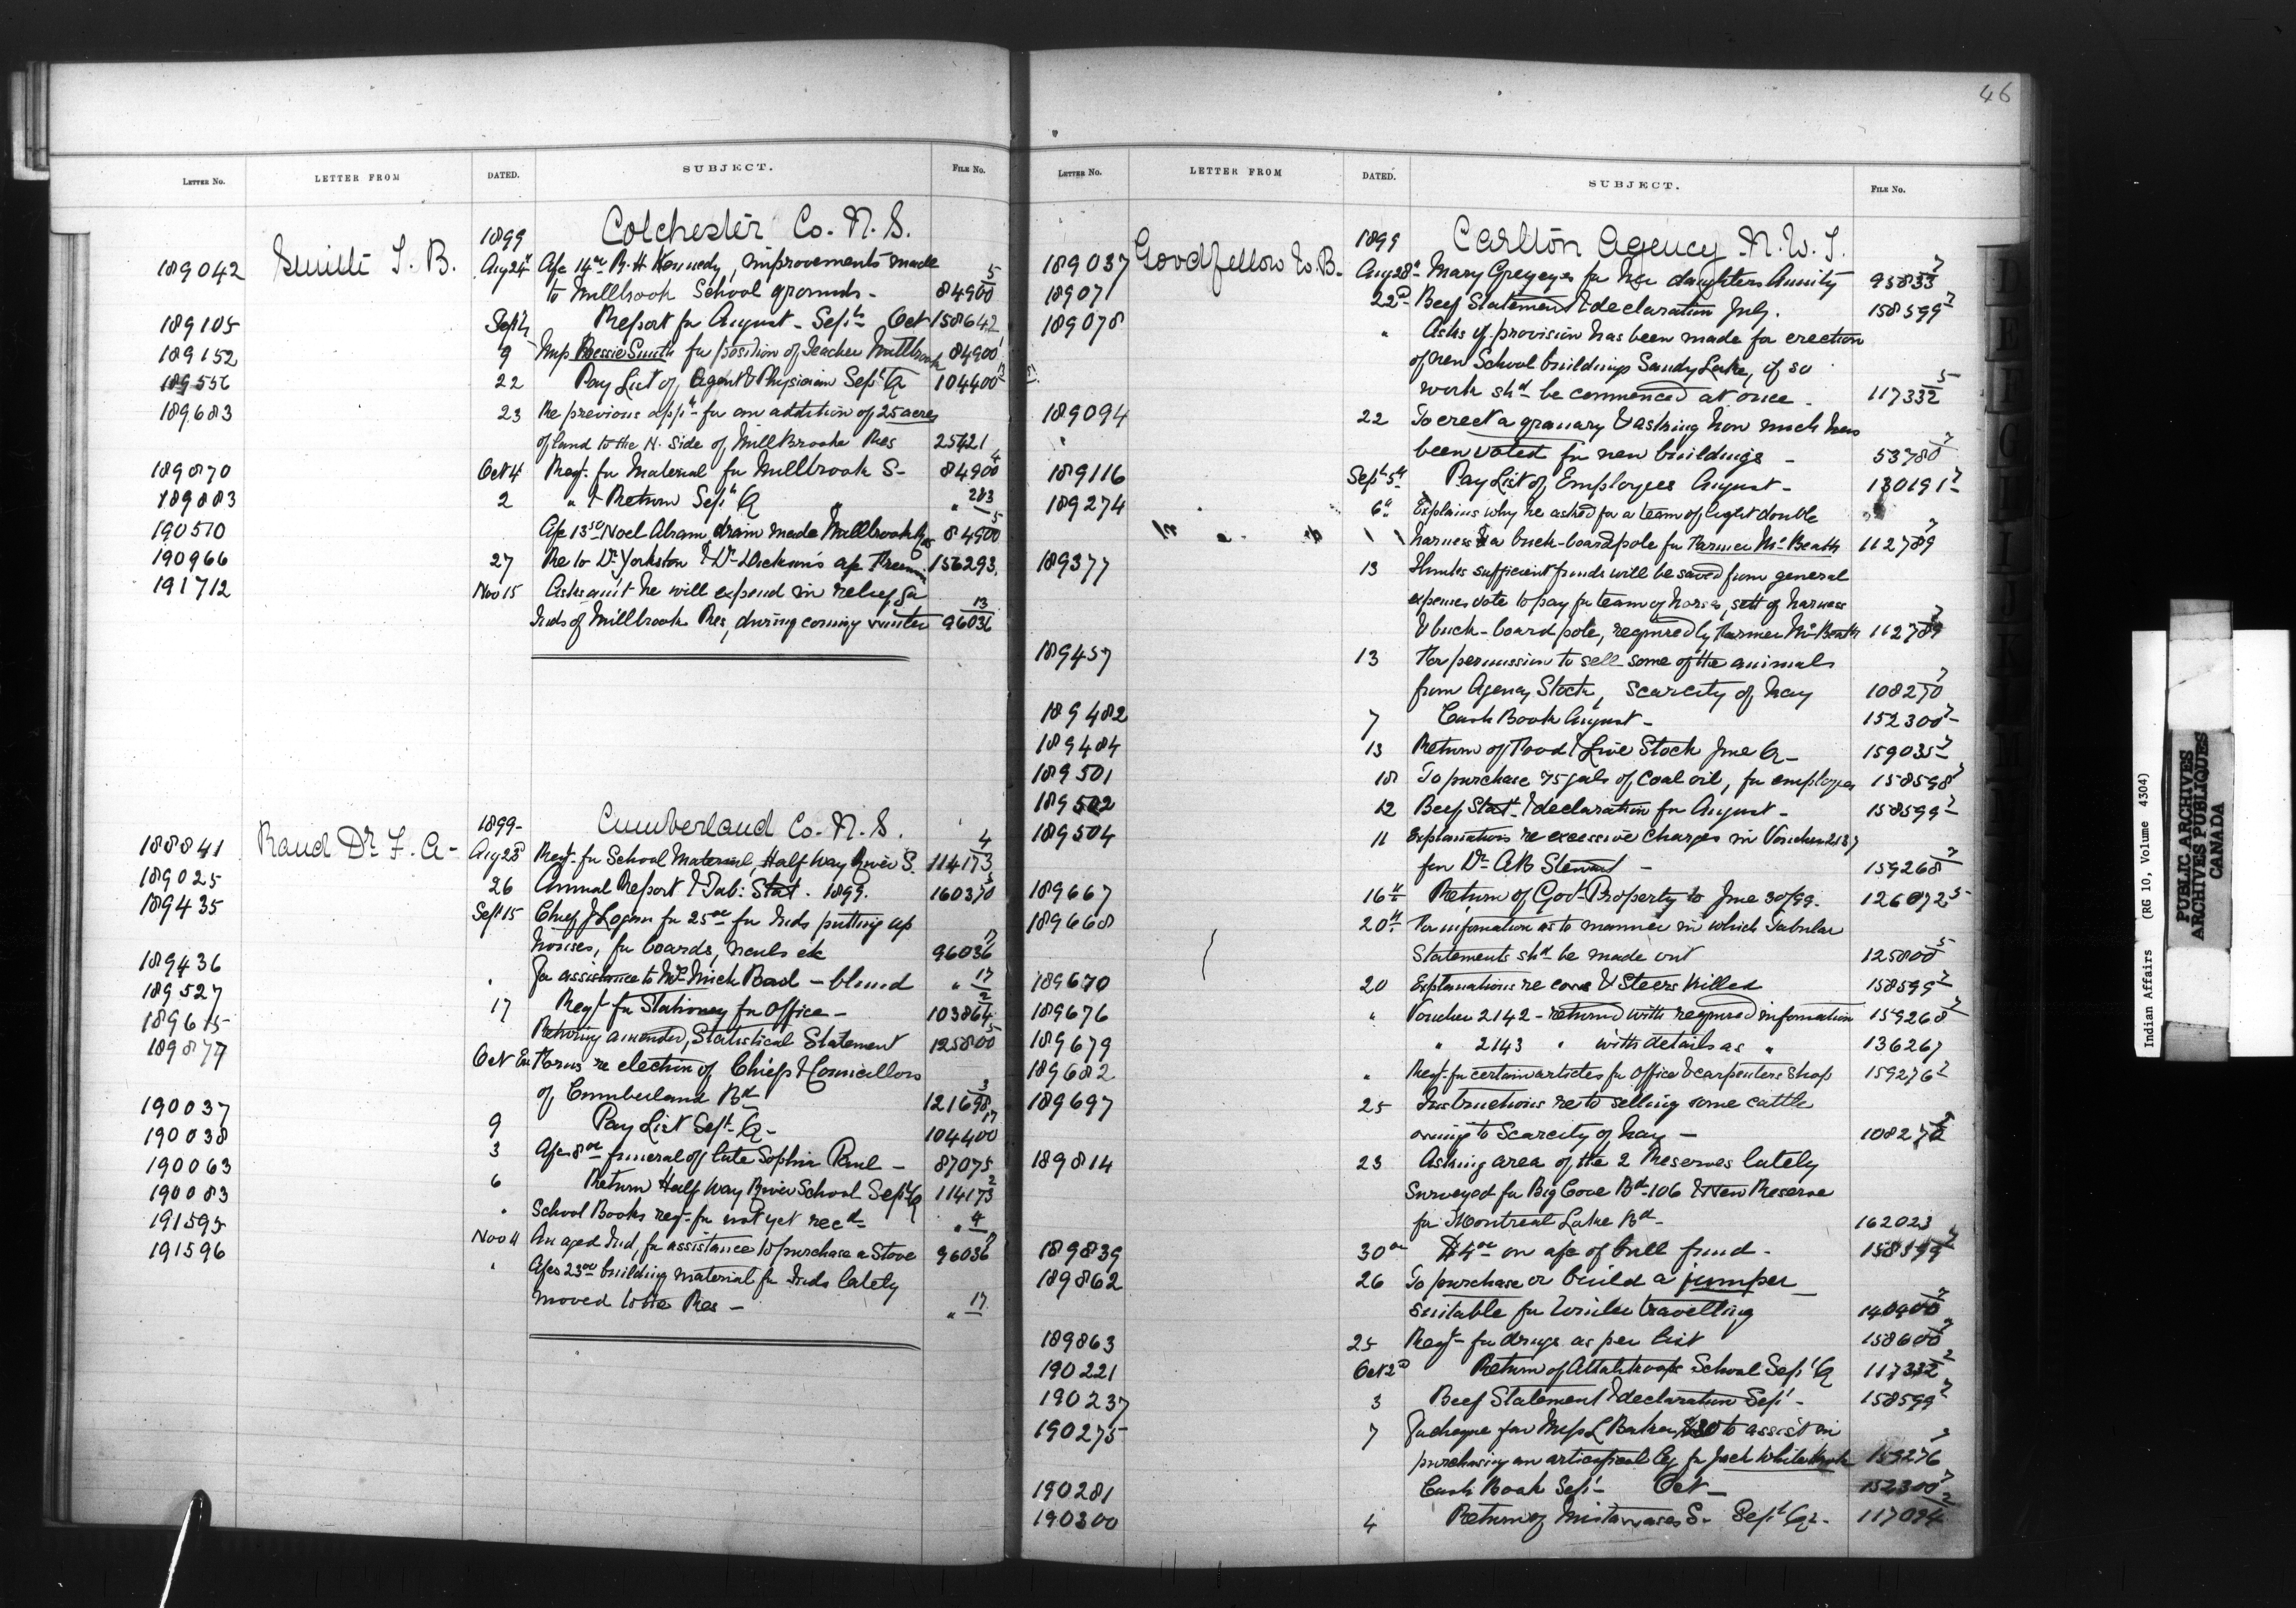 46
LETTER NO. LETTER FROM DATED. SUBJECT. FILE No.
1899 Colchester Co. N. S.
189042 Smith T. B. Aug 24th A/c 14.00 R. H. Kennedy, improvements made
to Millbrook School grounds - 84900 5
189105 Sept Report for August - Sept Oct 158642
189152 9 Miss Bessie Smith for position of Teacher Millbrook 84900
189556 22 Pay List of Agent & Physician Sept Q 104400
189683 23 Re previous appn for an addition of 25 acres
of land to the N. side of Mill Brook Res 25421
189870 Oct 4 Reqt. for Material for Millbrook S- 84900 4
189883 2 " & Return Sept Q " 283
190510 A/c 13.50 Noel Abram, drain made Millbrook Res 84900 5
190966 27 Re to Dr Yorkston & Dr Dickson's a/c 156293.
191712 Nov 15 Asks amt he will expend in relieving
Inds of Millbrook Res, during coming winter 96036 13
1899- Cumberland Co. N. S.
188841 Rand Dr. F. A- Aug 28th Reqt- for School Material, Half Way River S. 114173 4
189025 26 Annual Report & Tab: Stat. 1899. 160370 3
189435 Sept 15 Chief J Logan for 25.00 for Inds putting up
houses, for boards, nails etc 96036 17
189436 " For assistance to Mrs Mick Paul - blind " 17
189527 17 Reqt for Stationery for Office - 103864 2
189615 Returning amended, Statistical Statement 125800 5
189877 Oct Forms re election of Chiefs & Councillors
of Cumberland Bd 121698 3
190037 9 Pay List Sept. Q- 104400 17
190038 3 A/c 8.00 funeral of late Sophia Paul - 87075
190063 6 Return Half Way River School Sept Q 114173 2
190083 " School Books reqt- for not yet recd- " 4
191595 Nov 11 An aged Ind, for assistance to purchase a Stove 96036 17
191596 " A/cs 23.00 building material for Inds lately
moved to the Res - " 17
LETTER NO. LETTER FROM DATED. SUBJECT. FILE No.
1899 Carlton Agency N. W. T.
189037 Goodfellow W. B. Aug 28th Mary Greyeyes for her daughters Annuity 95833 7
189071 22d Beef Statement & declaration July. 158599 7
189078 " Asks if provision has been made for erection
of new School buildings Sandy Lake, if so
work shd be commenced at once. 117332 5
189094 22 To erect a granary & asking how much has
been voted for new buildings - 53780 7
189116 Sept 5th Pay List of Employees August - 130191 7
189274 6th Explains why he asked for a team of light double
harness & a buck-board pole for Farmer McBeath 112789 7
189377 13 Thinks sufficient funds will be saved from general
expenses vote to pay for team of horses, sett of harness
& buck-board pole, required by Farmer McBeath 112789 7
189457 13 For permission to sell some of the animals
from Agency Stock, scarcity of hay 108270 7
189482 7 Cash Book August - 152300 7
189484 13 Return of Food & Live Stock June Q- 159035 7
189501 18 To purchase 75 gals of Coal oil, for employees 158598 7
189502 12 Beef Stat & declaration for August - 158599 7
189504 11 Explanations re excessive charges in Voucher 2137
for Dr AB Stewart - 159268 7
189667 16th Return of Govt Property to June 30/99. 126072 5
189668 20th For information as to manner in which Tabular
Statements shd be made out 125800 5
189670 20 Explanations re cows & Steers killed 158599 7
189676 " Voucher 2142 - returned with required information 159268 7
189679 " 2143 " with details as " 136267
189682 " Reqt. for certain articles for Office & carpenters Shop 159276 2
189697 25 Instructions re to selling some cattle
owing to Scarcity of hay - 108270
189814 23 Asking area of the 2 Reserves lately
Surveyed for Big Cove Bd-106 & New Reserve
for Montreal Lake Bd- 162023
189839 30th $4.00 on a/c of bull fund - 158599 7
189862 26 To purchase or build a jumper
suitable for Winter travelling 140400 7
189863 25 Reqt- for drugs as per list 158600 7
190221 Oct 2d Return of Attakakoops School Sept Q 117332 2
190237 3 Beef Statement & declaration Sept - 158599 7
190275 7 For cheque for Miss L Baker, $30 to assist in
purchasing an artificial leg for Jack White 159276
190281 Cash Book Sept - Oct - 152300 7
190300 4 Return of Mistawasis S. Sept Qr. 117094 2
Indian Affairs (RG 10, Volume 4304)
PUBLIC ARCHIVES
ARCHIVES PUBLIQUES
CANADA